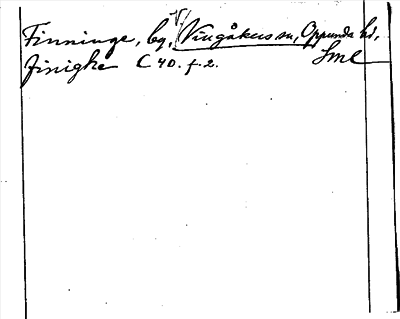 Finninge, by, V Vingåkers sn, Oppunda hd,
Sml
finighe C 40. f. 2.